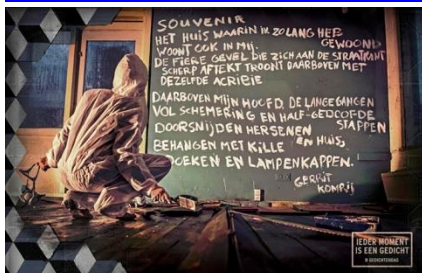 SOUVENIR
HET HUIS WAARIN IK ZO LANG HEB
GEWOOND
WOONT OOK IN MIJ.
DE FIERE GEVEL DIE ZICH AAN DE STRAATKANT
SCHERP AFTEKT TROONT DAARBOVEN MET
DEZELFDE ACRIBIE
DAARBOVEN MIJN HOOFD. DE LANGE GANGEN
VOL SCHEMERING EN HALF-GEDOOFDE
STAPPEN
DOORSNIJDEN HERSENEN
BEHANGEN MET KILLE EN HUIS,
DOEKEN EN LAMPENKAPPEN.
GERRIT
KOMRIJ
IEDER MOMENT
IS EEN GEDICHT
GEDICHTENDAG